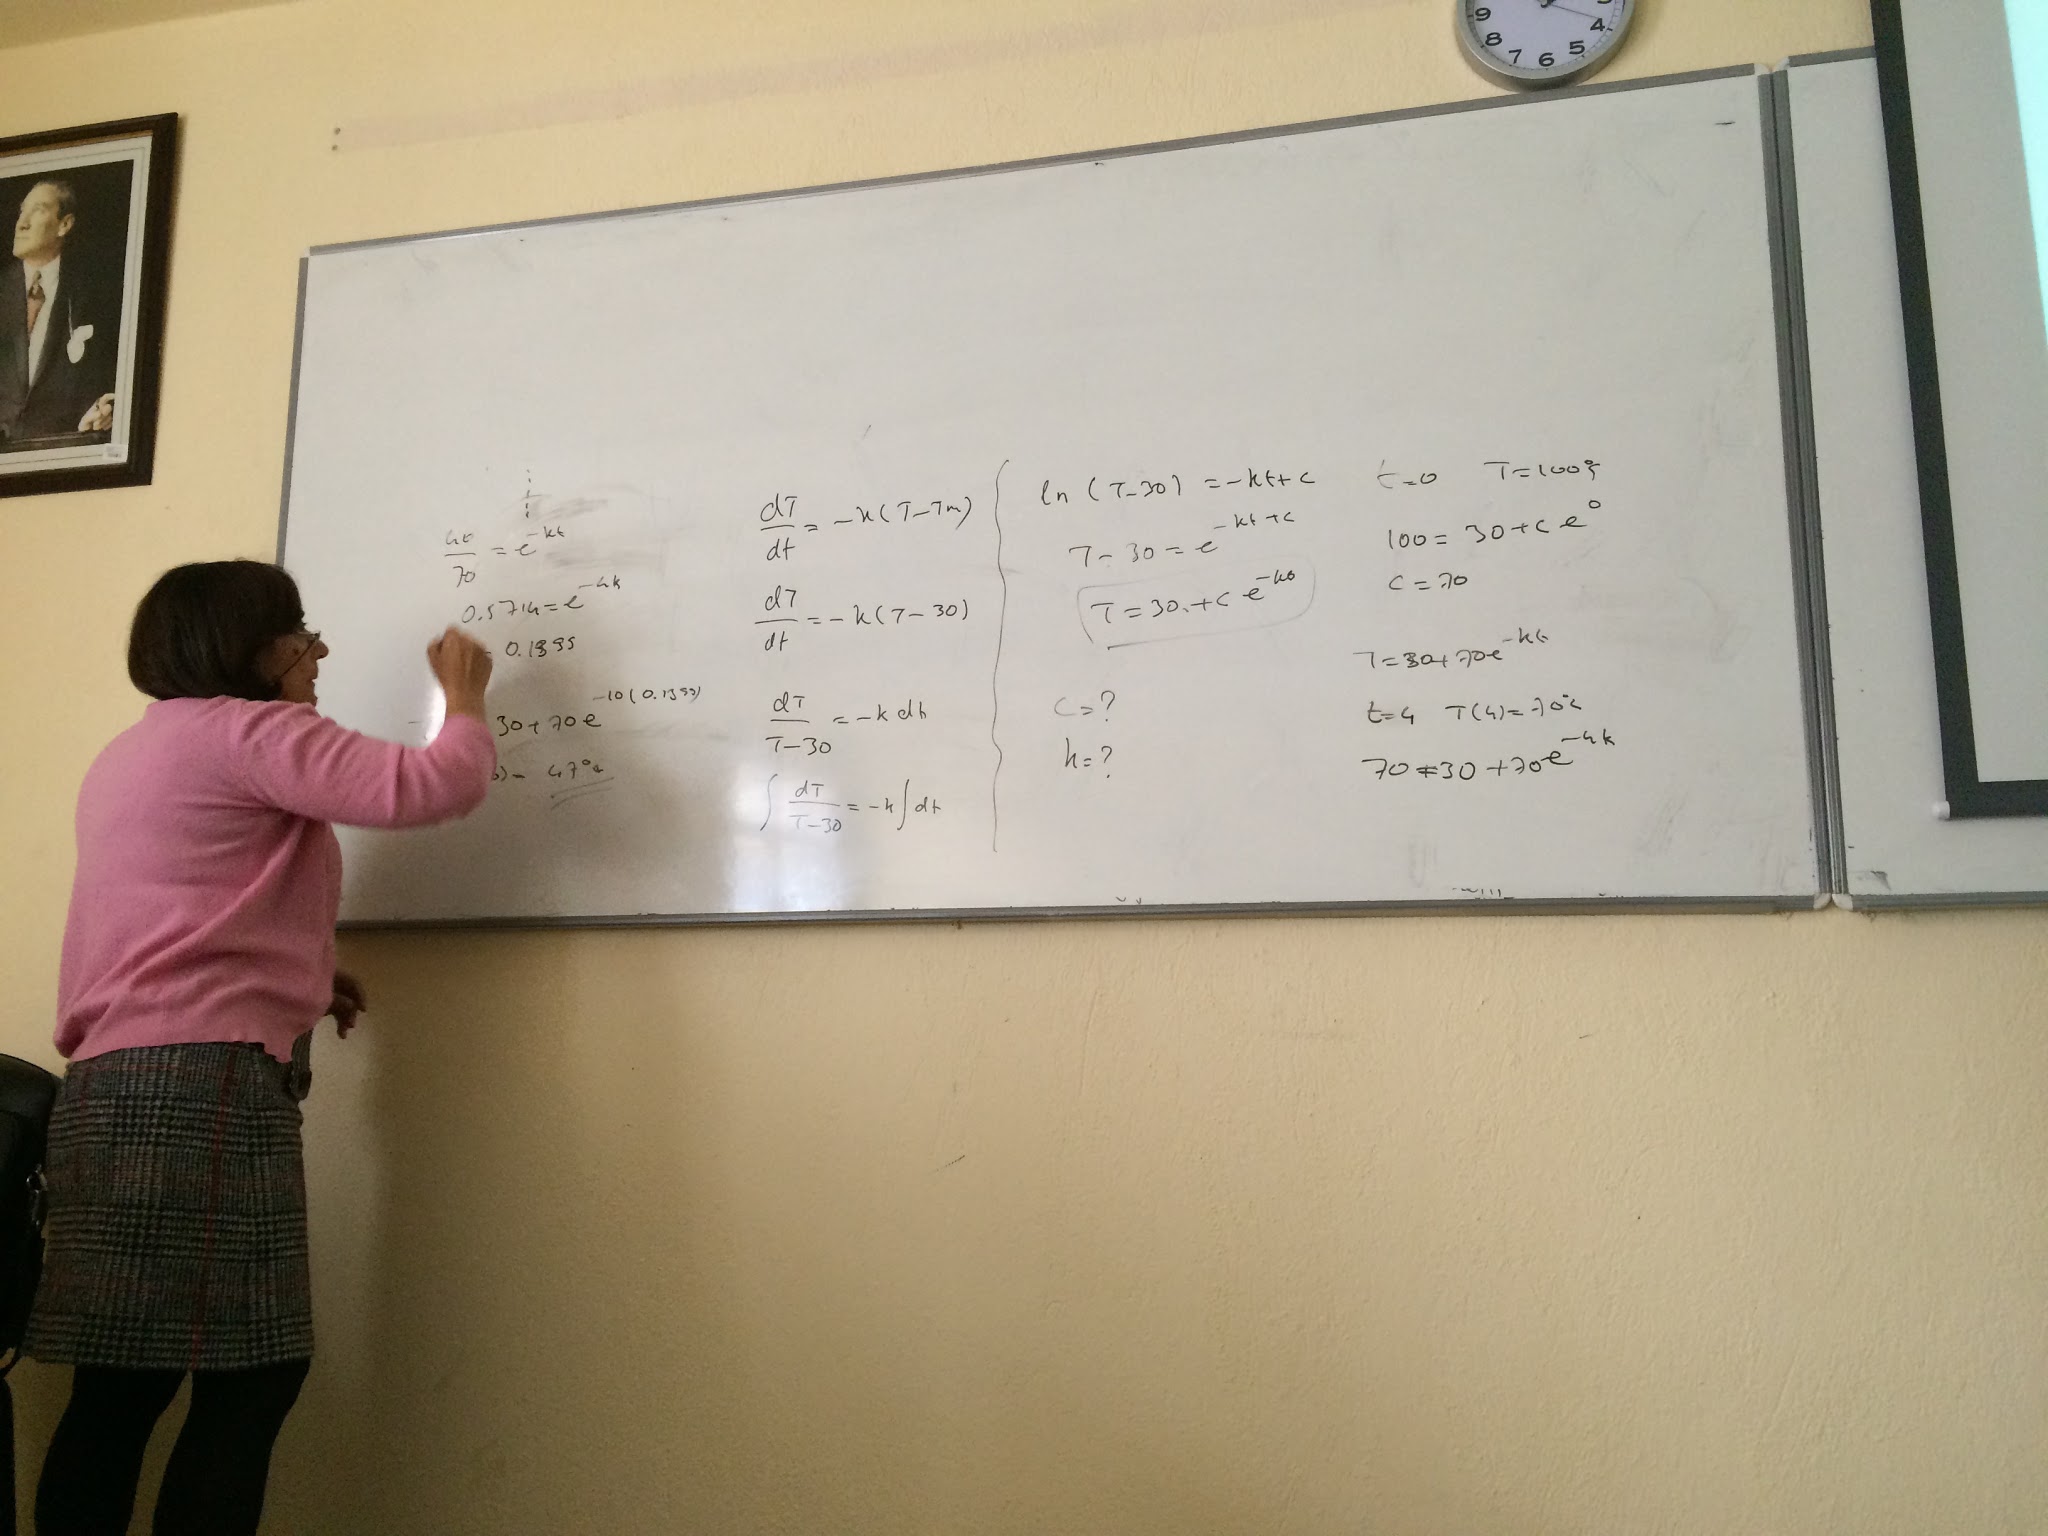 9 8 7 6 5 4
40/70 = e^-kt
0.5714 = e^-4k
0.1399
30+70e^-10(0.1399)
47°c
dT/dt = -k(T-Tm)
dT/dt = -k(T-30)
dT/T-30 = -k dt
∫ dT/T-30 = -k∫dt
ln (T-30) = -kt+c
T-30 = e^-kt+c
T=30+c e^-kt
c=?
k=?
t=0 T=100°c
100 = 30+c e^0
c = 70
T=30+70e^-kt
t=4 T(4)=70°c
70=30+70e^-4k